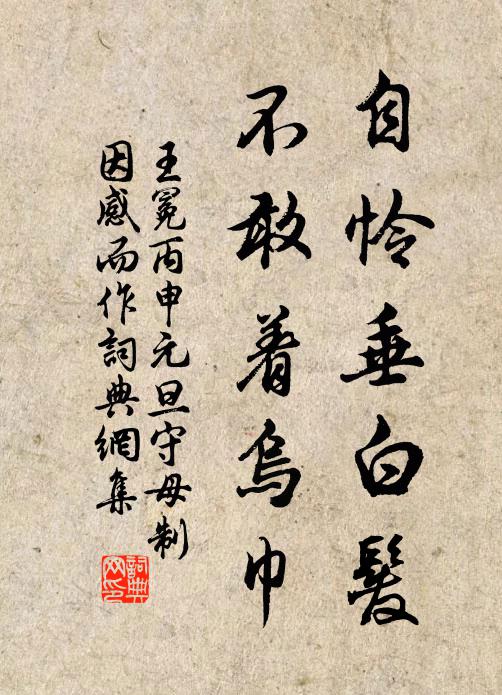 自怜垂白髮
不敢着烏巾
王冕丙申元旦守母制
因感而作詞典網集
詞典網印